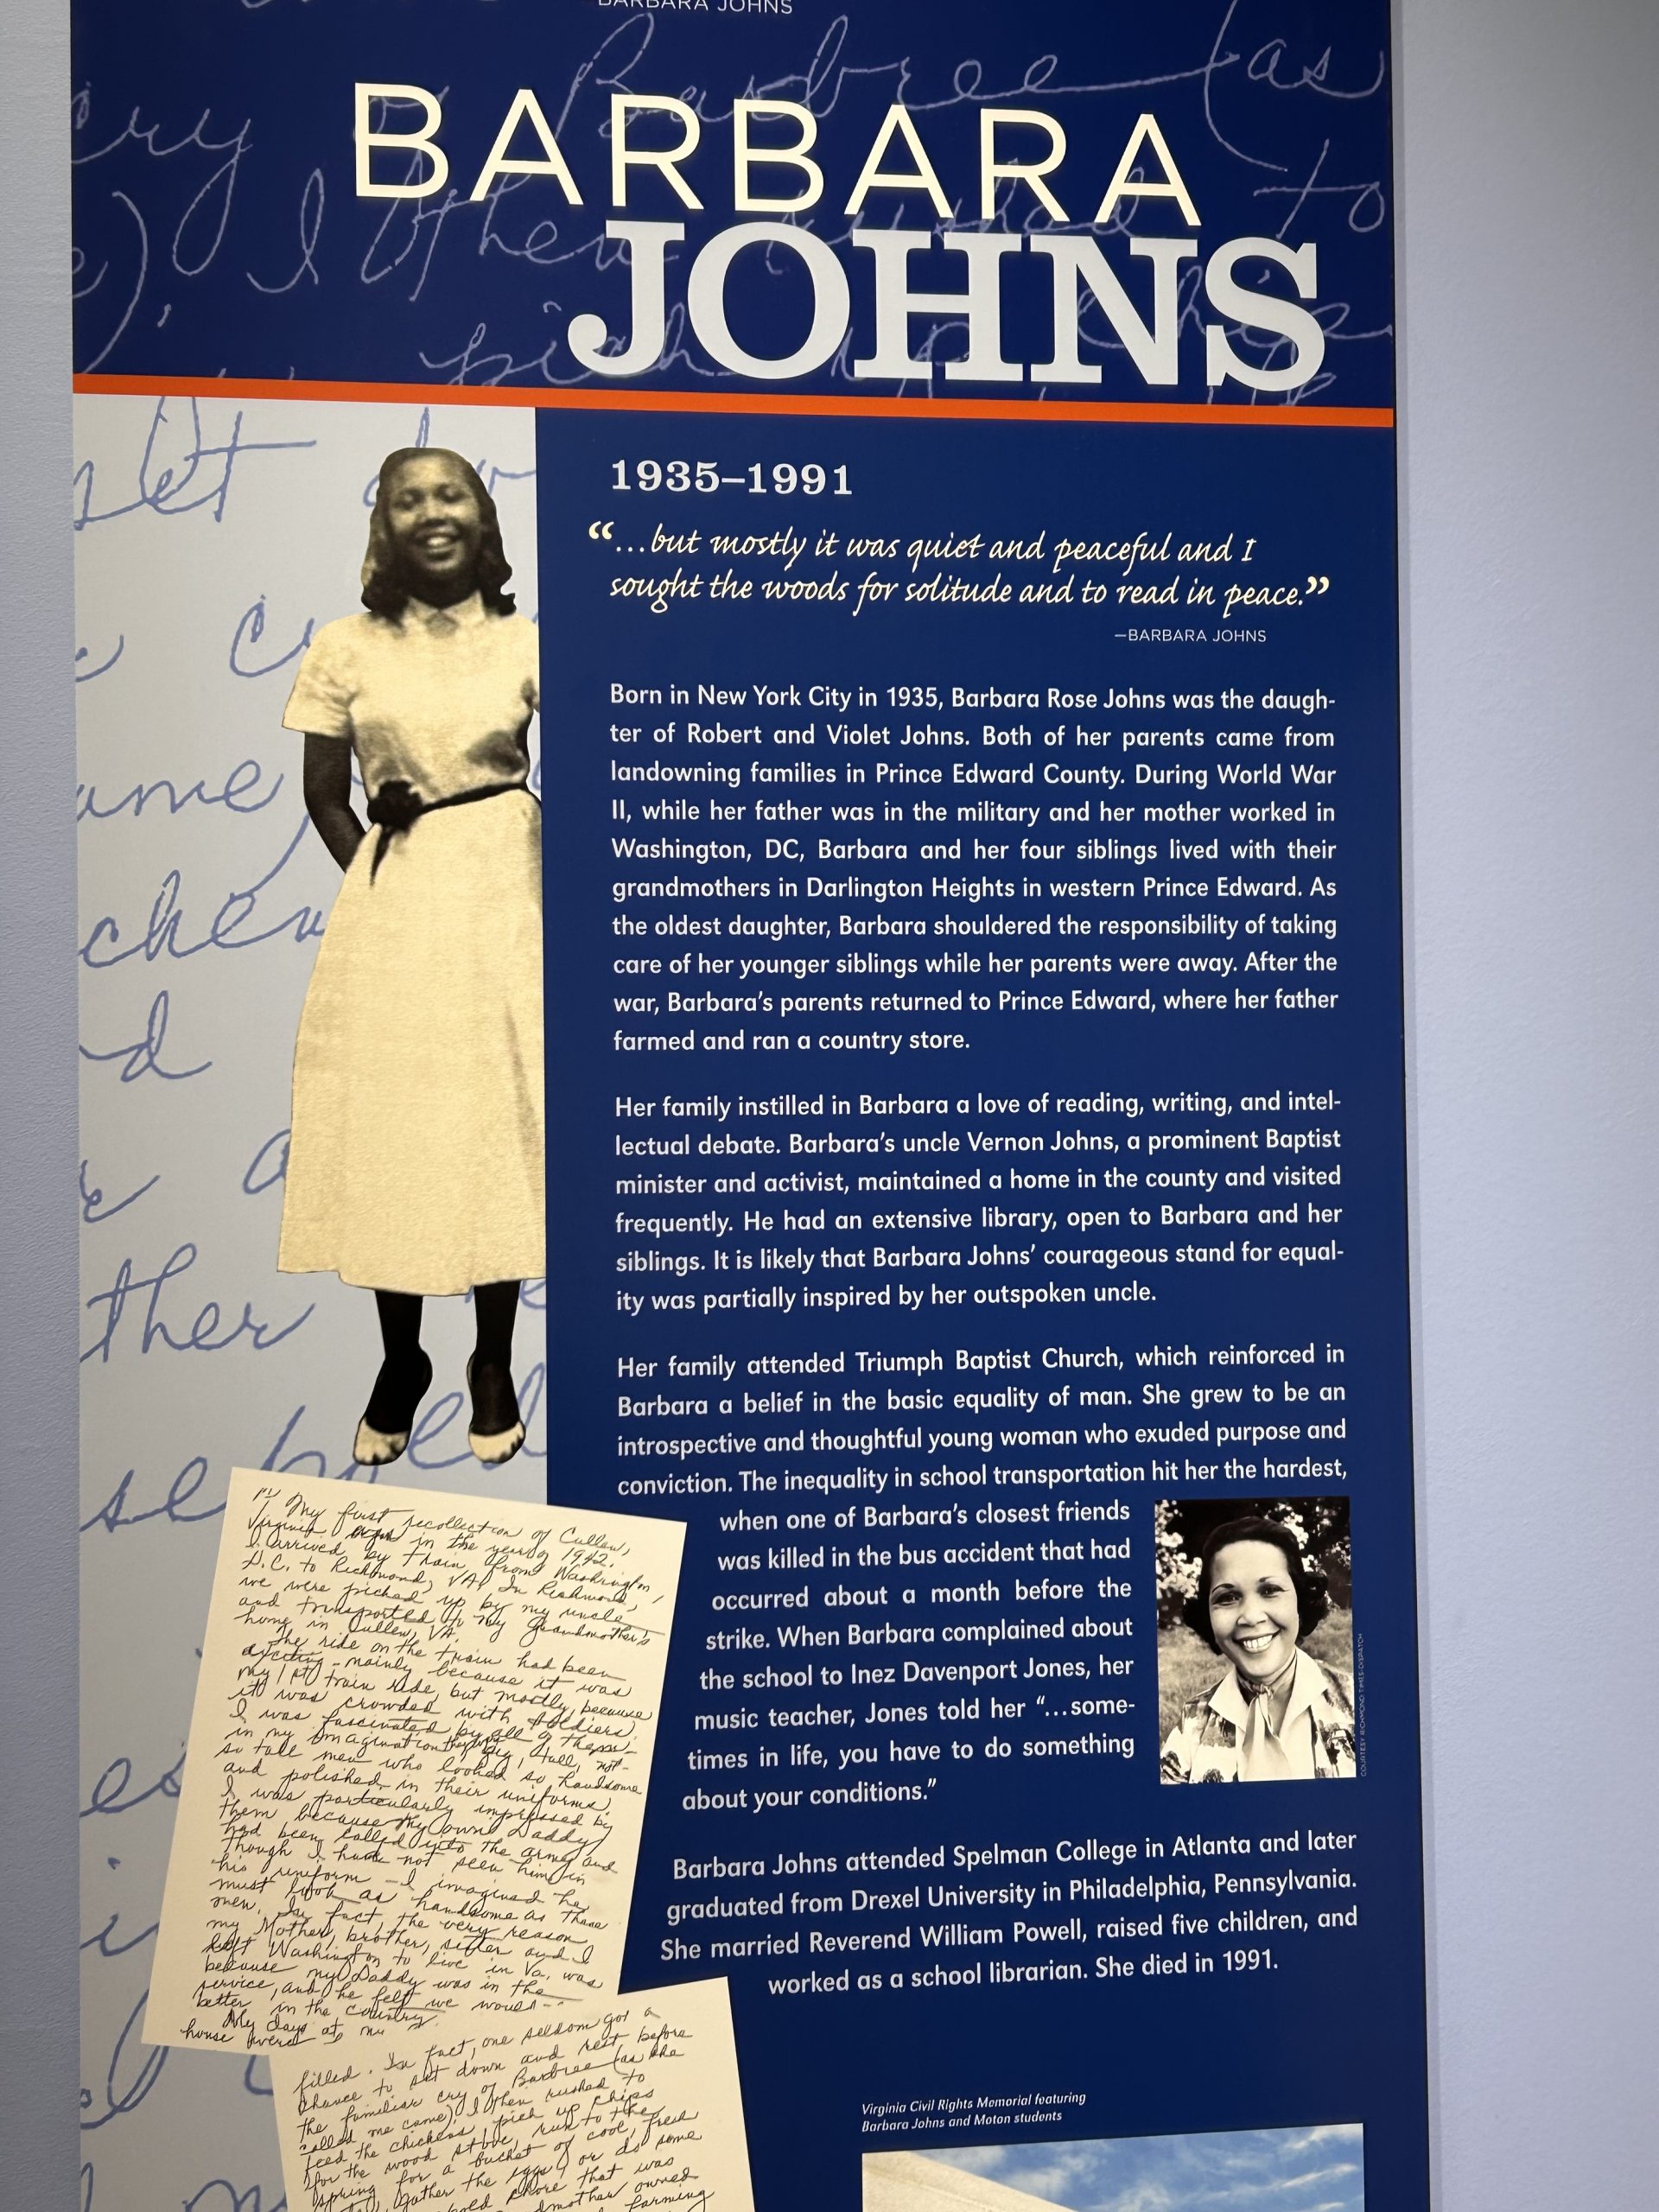 BARBARA JOHNS
BARBARA
JOHNS
1935–1991
“...but mostly it was quiet and peaceful and I
sought the woods for solitude and to read in peace.”
—BARBARA JOHNS
Born in New York City in 1935, Barbara Rose Johns was the daugh-
ter of Robert and Violet Johns. Both of her parents came from
landowning families in Prince Edward County. During World War
II, while her father was in the military and her mother worked in
Washington, DC, Barbara and her four siblings lived with their
grandmothers in Darlington Heights in western Prince Edward. As
the oldest daughter, Barbara shouldered the responsibility of taking
care of her younger siblings while her parents were away. After the
war, Barbara’s parents returned to Prince Edward, where her father
farmed and ran a country store.
Her family instilled in Barbara a love of reading, writing, and intel-
lectual debate. Barbara’s uncle Vernon Johns, a prominent Baptist
minister and activist, maintained a home in the county and visited
frequently. He had an extensive library, open to Barbara and her
siblings. It is likely that Barbara Johns’ courageous stand for equal-
ity was partially inspired by her outspoken uncle.
Her family attended Triumph Baptist Church, which reinforced in
Barbara a belief in the basic equality of man. She grew to be an
introspective and thoughtful young woman who exuded purpose and
conviction. The inequality in school transportation hit her the hardest,
when one of Barbara’s closest friends
was killed in the bus accident that had
occurred about a month before the
strike. When Barbara complained about
the school to Inez Davenport Jones, her
music teacher, Jones told her “...some-
times in life, you have to do something
about your conditions.”
COURTESY RICHMOND TIMES-DISPATCH
Barbara Johns attended Spelman College in Atlanta and later
graduated from Drexel University in Philadelphia, Pennsylvania.
She married Reverend William Powell, raised five children, and
worked as a school librarian. She died in 1991.
Virginia Civil Rights Memorial featuring
Barbara Johns and Moton students
My first recollection of Cullen,
Virginia in the year of 1942.
I arrived by train from Washington,
D.C. to Richmond, VA. In Richmond,
we were picked up by my uncle
and transported to my Grandmother's
home in Cullen, VA.
The ride on the train had been
exciting - mainly because it was
my 1st train ride, but mostly because
it was crowded with soldiers.
I was fascinated by all of them -
in my imagination they big, tall, not-
so tall men who looked so handsome
and polished in their uniforms.
I was particularly impressed by
them because my own Daddy
had been called into the army and
though I had not seen him in
his uniform - I imagined he
must look as handsome as these
men. In fact, the very reason
my Mother, brother, sister and I
left Washington to live in Va. was
because my Daddy was in the
service, and he felt we would
better in the country.
My days at my
house were
filled. In fact, one seldom got a
chance to sit down and rest before
the familiar cry of Barbree (as she
called me came). I then rushed to
feed the chickens, pick up chips
for the wood stove, run to the
spring for a bucket of cool, fresh
gather the eggs or do some
chore that was
owned
farming